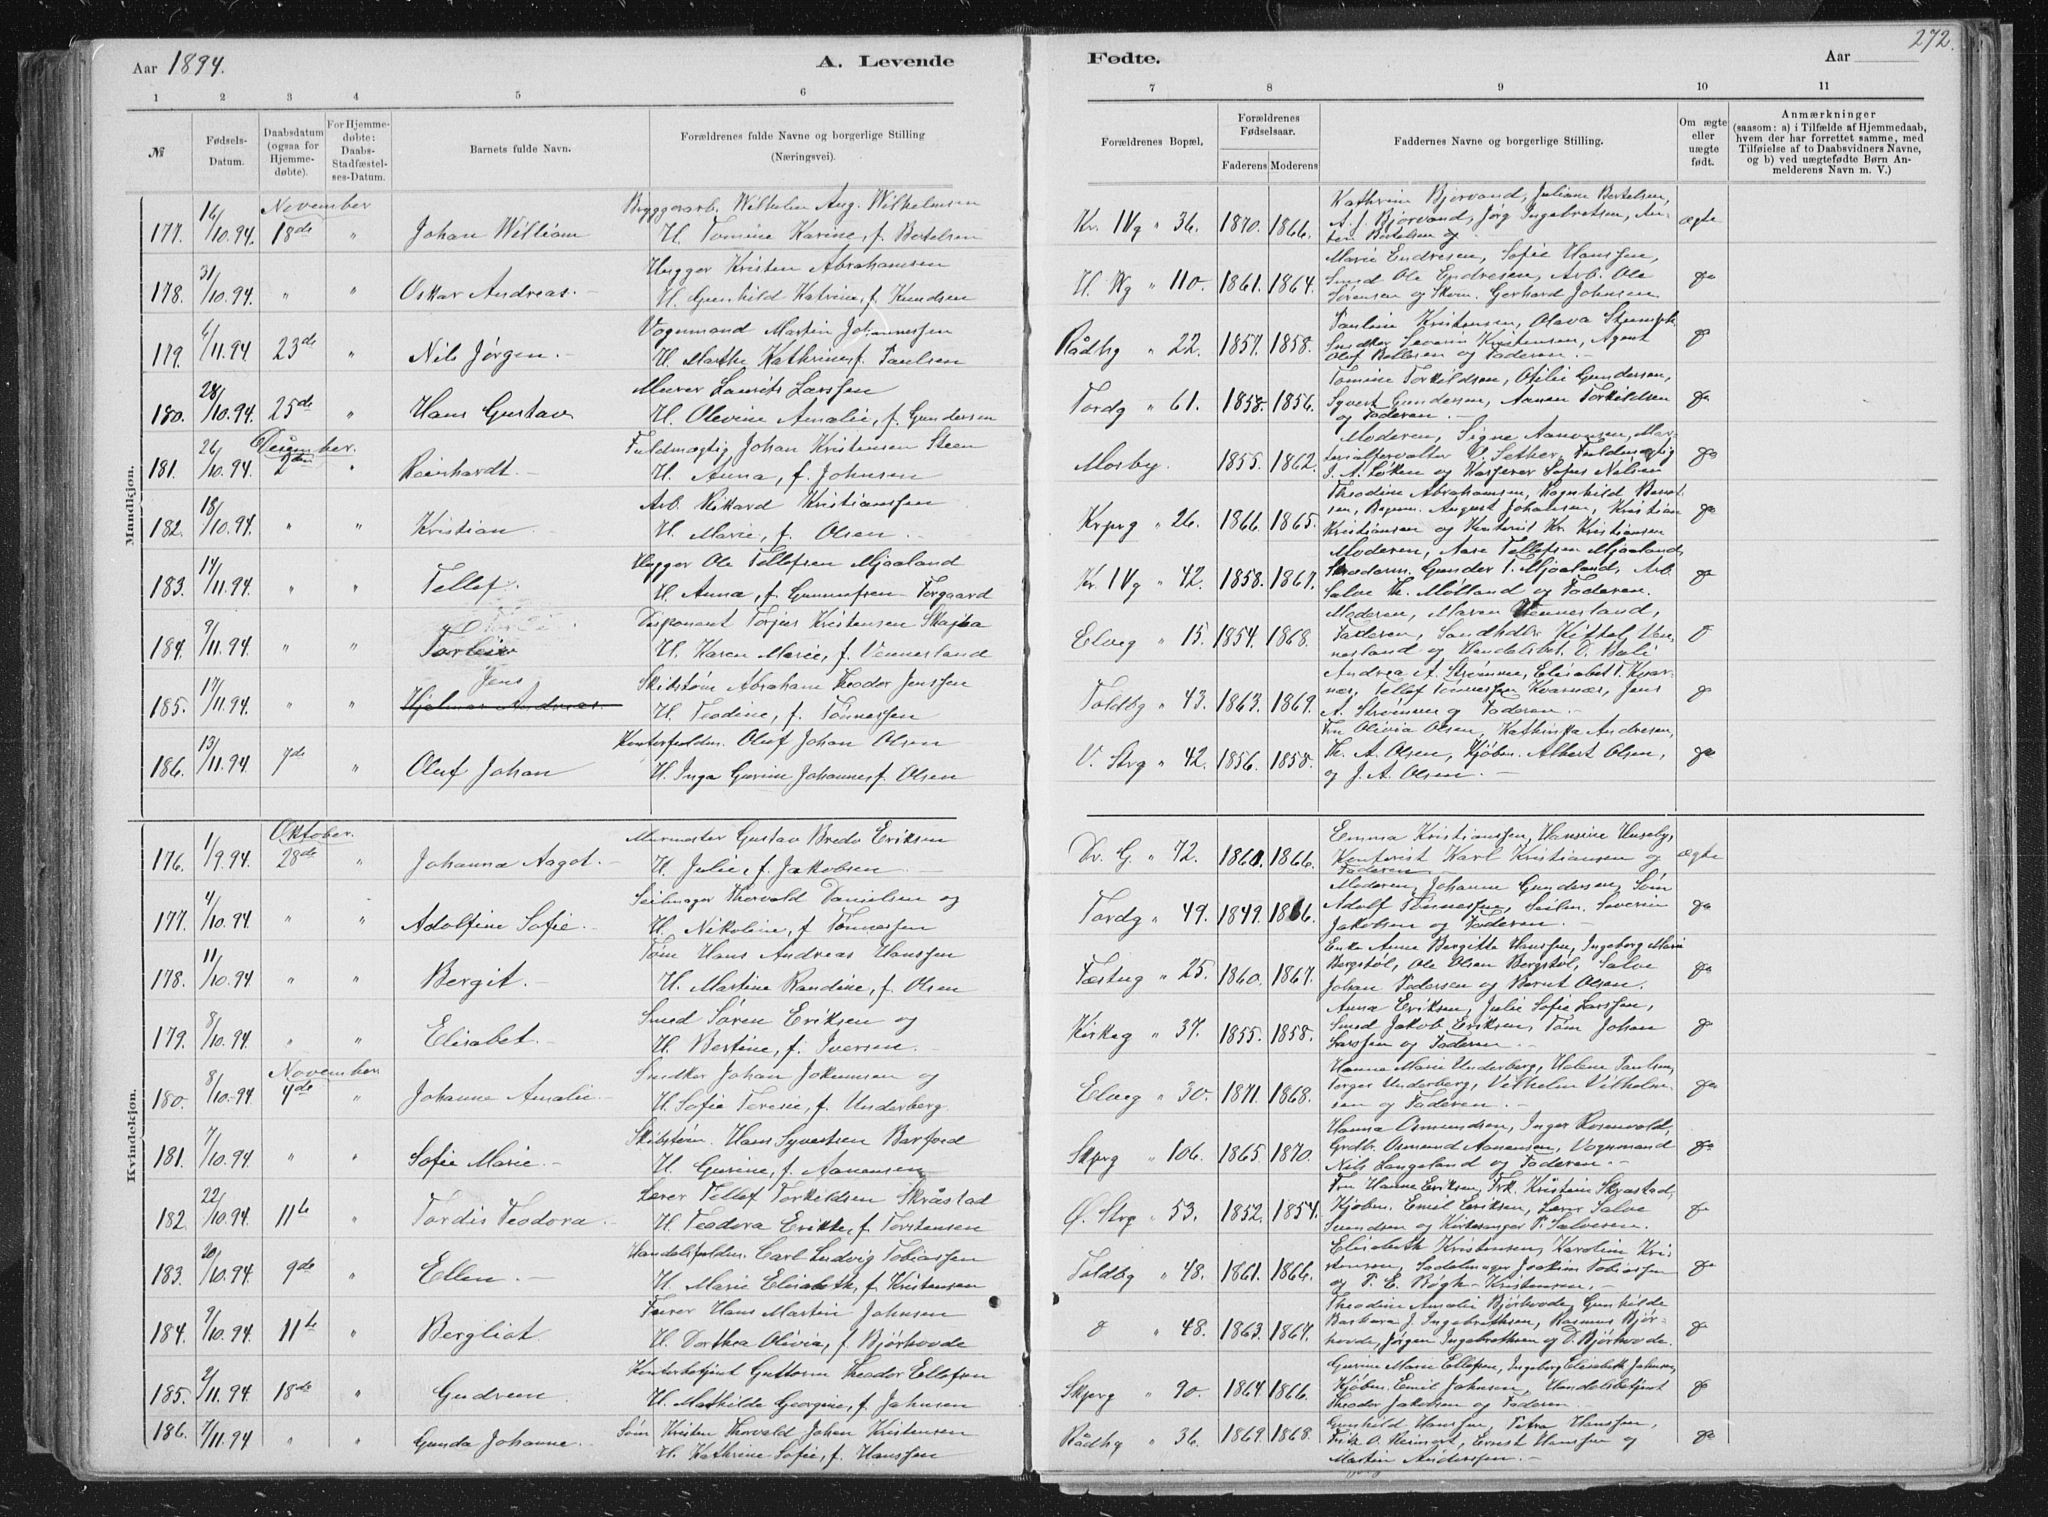 Aar 1894.
A. Levende
Fødte.
Aar
272.
1 2 3 4 5 6 7 8 9 10 11
№
Fødsels-Datum.
Daabsdatum (ogsaa for Hjemmedøbte).
For Hjemmedøbte: Daabs-Stadfæstelses-Datum.
Barnets fulde Navn.
Forældrenes fulde Navne og borgerlige Stilling (Næringsvei).
Forældrenes Bopæl.
Forældrenes Fødselsaar.
Faderens Moderens
Faddernes Navne og borgerlige Stilling.
Om ægte eller uægte født.
Anmærkninger (saasom: a) i Tilfælde af Hjemmedaab, hvem der har forrettet samme, med Tilføielse af to Daabsvidners Navne, og b) ved uægtefødte Børn Anmelderens Navn m. V.)
Mandkjøn.
November
177. 16/10.94. 18de " Johan William
Byggerarb. Wilhelm Aug. Wilhelmsen
H. Tomine Karine, f. Bertelsen
Kr. IVg " 36. 1870. 1866.
Kathrine Bjorvand, Juliane Bertelsen,
A. J. Bjorvand, Jørg Ingebretsen, An-
ton Bertelsen og
ægte
178. 31/10.94. " " Oskar Andreas.
Hugger Kristen Abrahamsen
H. Gunhild Katrine, f. Knudsen
110. 1861. 1864.
Marie Endresen, Sofie Hanssen,
Smed Ole Endresen, Arb. Ole
Sørensen og Skom. Gerhard Johnsen
179. 6/11.94 23de " Nils Jørgen.
Vognmand Martin Johannessen
H. Marthe Kathrine, f. Paulsen
Rådhg " 22. 1857. 1858.
Pauline Kristensen, Olava
Snedker Severin Kristensen, Agent
Olof Bellesen og Faderen.
180. 28/10.94. 25de " Hans Gustav
Murer Laurits Larssen
H. Olevine Amalie, f. Gundersen
Tordg " 61. 1858. 1856.
Tomine Torkildsen, Otilie Gundersen,
Syvert Gundersen, Aanen Torkildsen
og Faderen.
December.
181. 26/10.94 2den " Reinhardt.
Fuldmægtig Johan Kristensen Steen
H. Anna, f. Johnsen
Mosby. 1855. 1862.
Moderen, Signe Aanonsen, Mat-
erialforvalter V. Sether, Fuldmægtig
J. A. Løken og Kasserer Sofus Nielsen
182. 18/10.94. " " Kristian
Arb. Rikard Kristianssen
H. Marie, f. Olsen
26. 1866. 1865.
Theodine Abrahamsen, Ragnhild Bernt-
sen, Bagerm. August Johansen, Kristian
Kristiansen og Kontorist Kr. Kristiansen
183. 14/11.94. " " Tellef.
Hugger Ole Tellefsen Mjaaland
H. Anna, f. Gunnufsen Torgaard
Kr. IVg " 42. 1858. 1867.
Moderen, Aase Tellefsen Mjaaland,
Skrædderm. Gunder T. Mjaaland, Arb.
Salve Th. Mølland og Faderen.
184. 9/11.94. " " Torleiv
Disponent Torjus Kristensen
H. Karen Marie, f. Vennerland
Elveg " 15. 1854. 1868.
Moderen, Maren Vennesland,
Faderen, Sandhdlr. Kittel Ven-
nesland og Handelsbet. D. Bali
185. 17/11.94. " " Jens
Hjelmar Andreas
Skibstøm Abraham Theodor Jenssen
H. Teodine, f. Tønnessen
Toldbg " 43. 1863. 1869.
Andrea A. Strømme, Elisabet T. Kvar-
næs, Tellef Tønnessen Kvarnæs, Jens
A. Strømme og Faderen.
186. 13/11.94. 7de " Oluf Johan
Kontorfuldm. Oluf Johan Olsen
H. Inga Gurine Johanne, f. Olsen
V. Strg " 42. 1856. 1858.
Fru Olivia Olsen, Kathinka Andresen,
Th. A. Olsen, Kjøbm. Albert Olsen,
og J. A. Olsen.
Kvindekjøn.
Oktober.
176. 1/9.94. 28de " Johanna Aagot.
Murmester Gustav Bredo Eriksen
H. Julie, f. Jakobsen
Dr. G. " 72. 1860. 1866.
Emma Kristianssen, Hansine Huseby,
Kontorist Karl Kristiansen og
Faderen
ægte
177. 4/10.94 " " Adolfine Sofie.
Seilmager Thorvald Danielsen og
H. Nikoline, f. Tønnessen
Tordg " 49. 1849. 1866.
Moderen, Johanne Gundersen, Søm.
Adolf Tønnessen, Seilm. Severin
Jakobsen og Faderen.
178. 11/10.94 " " Bergit.
Tøm. Hans Andreas Hanssen
H. Martine Randine, f. Olsen
Fæstng " 25. 1860. 1867.
Enke Anne Bergitte Hanssen, Ingeborg Marie
Bergstøl, Ole Olsen Bergstøl, Salve
Johan Pedersen og Bernt Olsen.
179. 8/10.94. " " Elisabet.
Smed Søren Eriksen og
H. Bertine, f. Iversen.
Kirkeg " 37. 1855. 1858.
Anna Eriksen, Julie Sofie Larssen,
Smed Jakob Eriksen, Tøm. Johan
Larssen og Faderen.
November
180. 8/10.-94. 4de " Johanne Amalie.
Snedker Johan Jokumsen og
H. Sofie Teresie, f. Underberg
Elveg " 30. 1871. 1868.
Hanna Marie Underberg, Helene Paulsen,
Torger Underberg, Vilhelm Vilhelm-
sen og Faderen.
181. 7/10.94. " " Sofie Marie.
Skibstøm. Hans Syvertsen Barfod
H. Gurine, f. Aanensen
Skperg " 106. 1865. 1870.
Hanna Osmundsen, Inger Rosenvold,
Grdbr. Osmund Aanensen, Vognmand
Nils Langeland og Faderen.
182. 22/10.94. 11te " Tordis Teodora.
Lærer Tellef Torkildsen Skråstad
H. Teodora Erikke, f. Torstensen
Ø. Strg " 53. 1852. 1854.
Fru Hanne Eriksen, Frk. Kristine Skråstad,
Kjøbm. Emil Eriksen, Lærer Salve
Svendsen og Kirkesanger P. Salvesen.
183. 20/10.94. 9de " Ellen.
Handelsfuldm. Carl Ludvig Tobiassen
H. Marie Elisabeth, f. Kristensen
Toldbg " 48. 1861. 1866.
Elisabeth Kristensen, Karoline Kri-
stensen, Sadelmager Joakim Tobiassen
og P. E. Bøgh-Kristensen.
184. 9/10.94. 11te " Bergliot
Fører Hans Martin Johnsen
H. Dorthea Olivia, f. Bjørhovde
" 48. 1863. 1867.
Theodine Amalie Bjørhovde, Gunhilde
Barbara J. Ingebrethsen, Rasmus Bjør-
hovde, Jørgen Ingebrethsen og D. Bjørhovde.
185. 2/11.94 18de " Gudrun
Kontorbetjent Guttorm Theodor Ellefsen
H. Mathilde Georgine, f. Johnsen
Skperg " 90. 1864. 1866.
Gurine Marie Ellefsen, Ingeborg Elisabeth Johnsen,
Kjøbm. Emil Johnsen, Handelsbetjent
Theodor Jakobsen og Faderen.
186. 7/11.94 " " Gunda Johanne.
Søm. Kristen Thorvald Johan Kristensen
H. Kathrine Sofie, f. Hanssen
Rådhg " 36. 1869. 1868.
Gunhild Hanssen, Petra Hanssen,
Fritz O. Reimert, Ernst Hanssen og
Martin Anderssen.